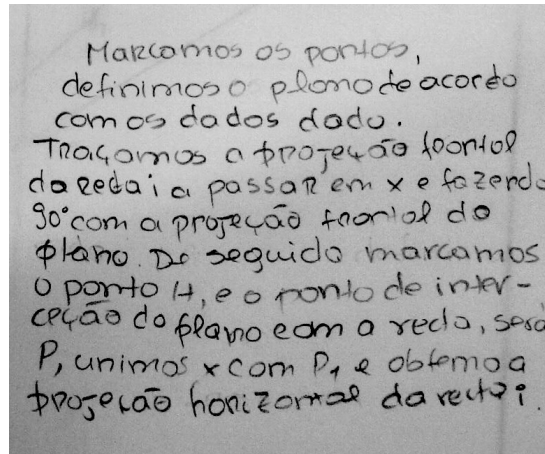 Marcamos os pontos,
definimos o plano de acordo
com os dados dado.
Traçamos a projeção frontal
da reta i a passar em x e fazendo
90° com a projeção frontal do
plano. De seguido marcamos
o ponto H, e o ponto de inter-
ceção do plano com a recta, será
P, unimos x com P₁ e obtemo a
projeção horizontal da recta i.